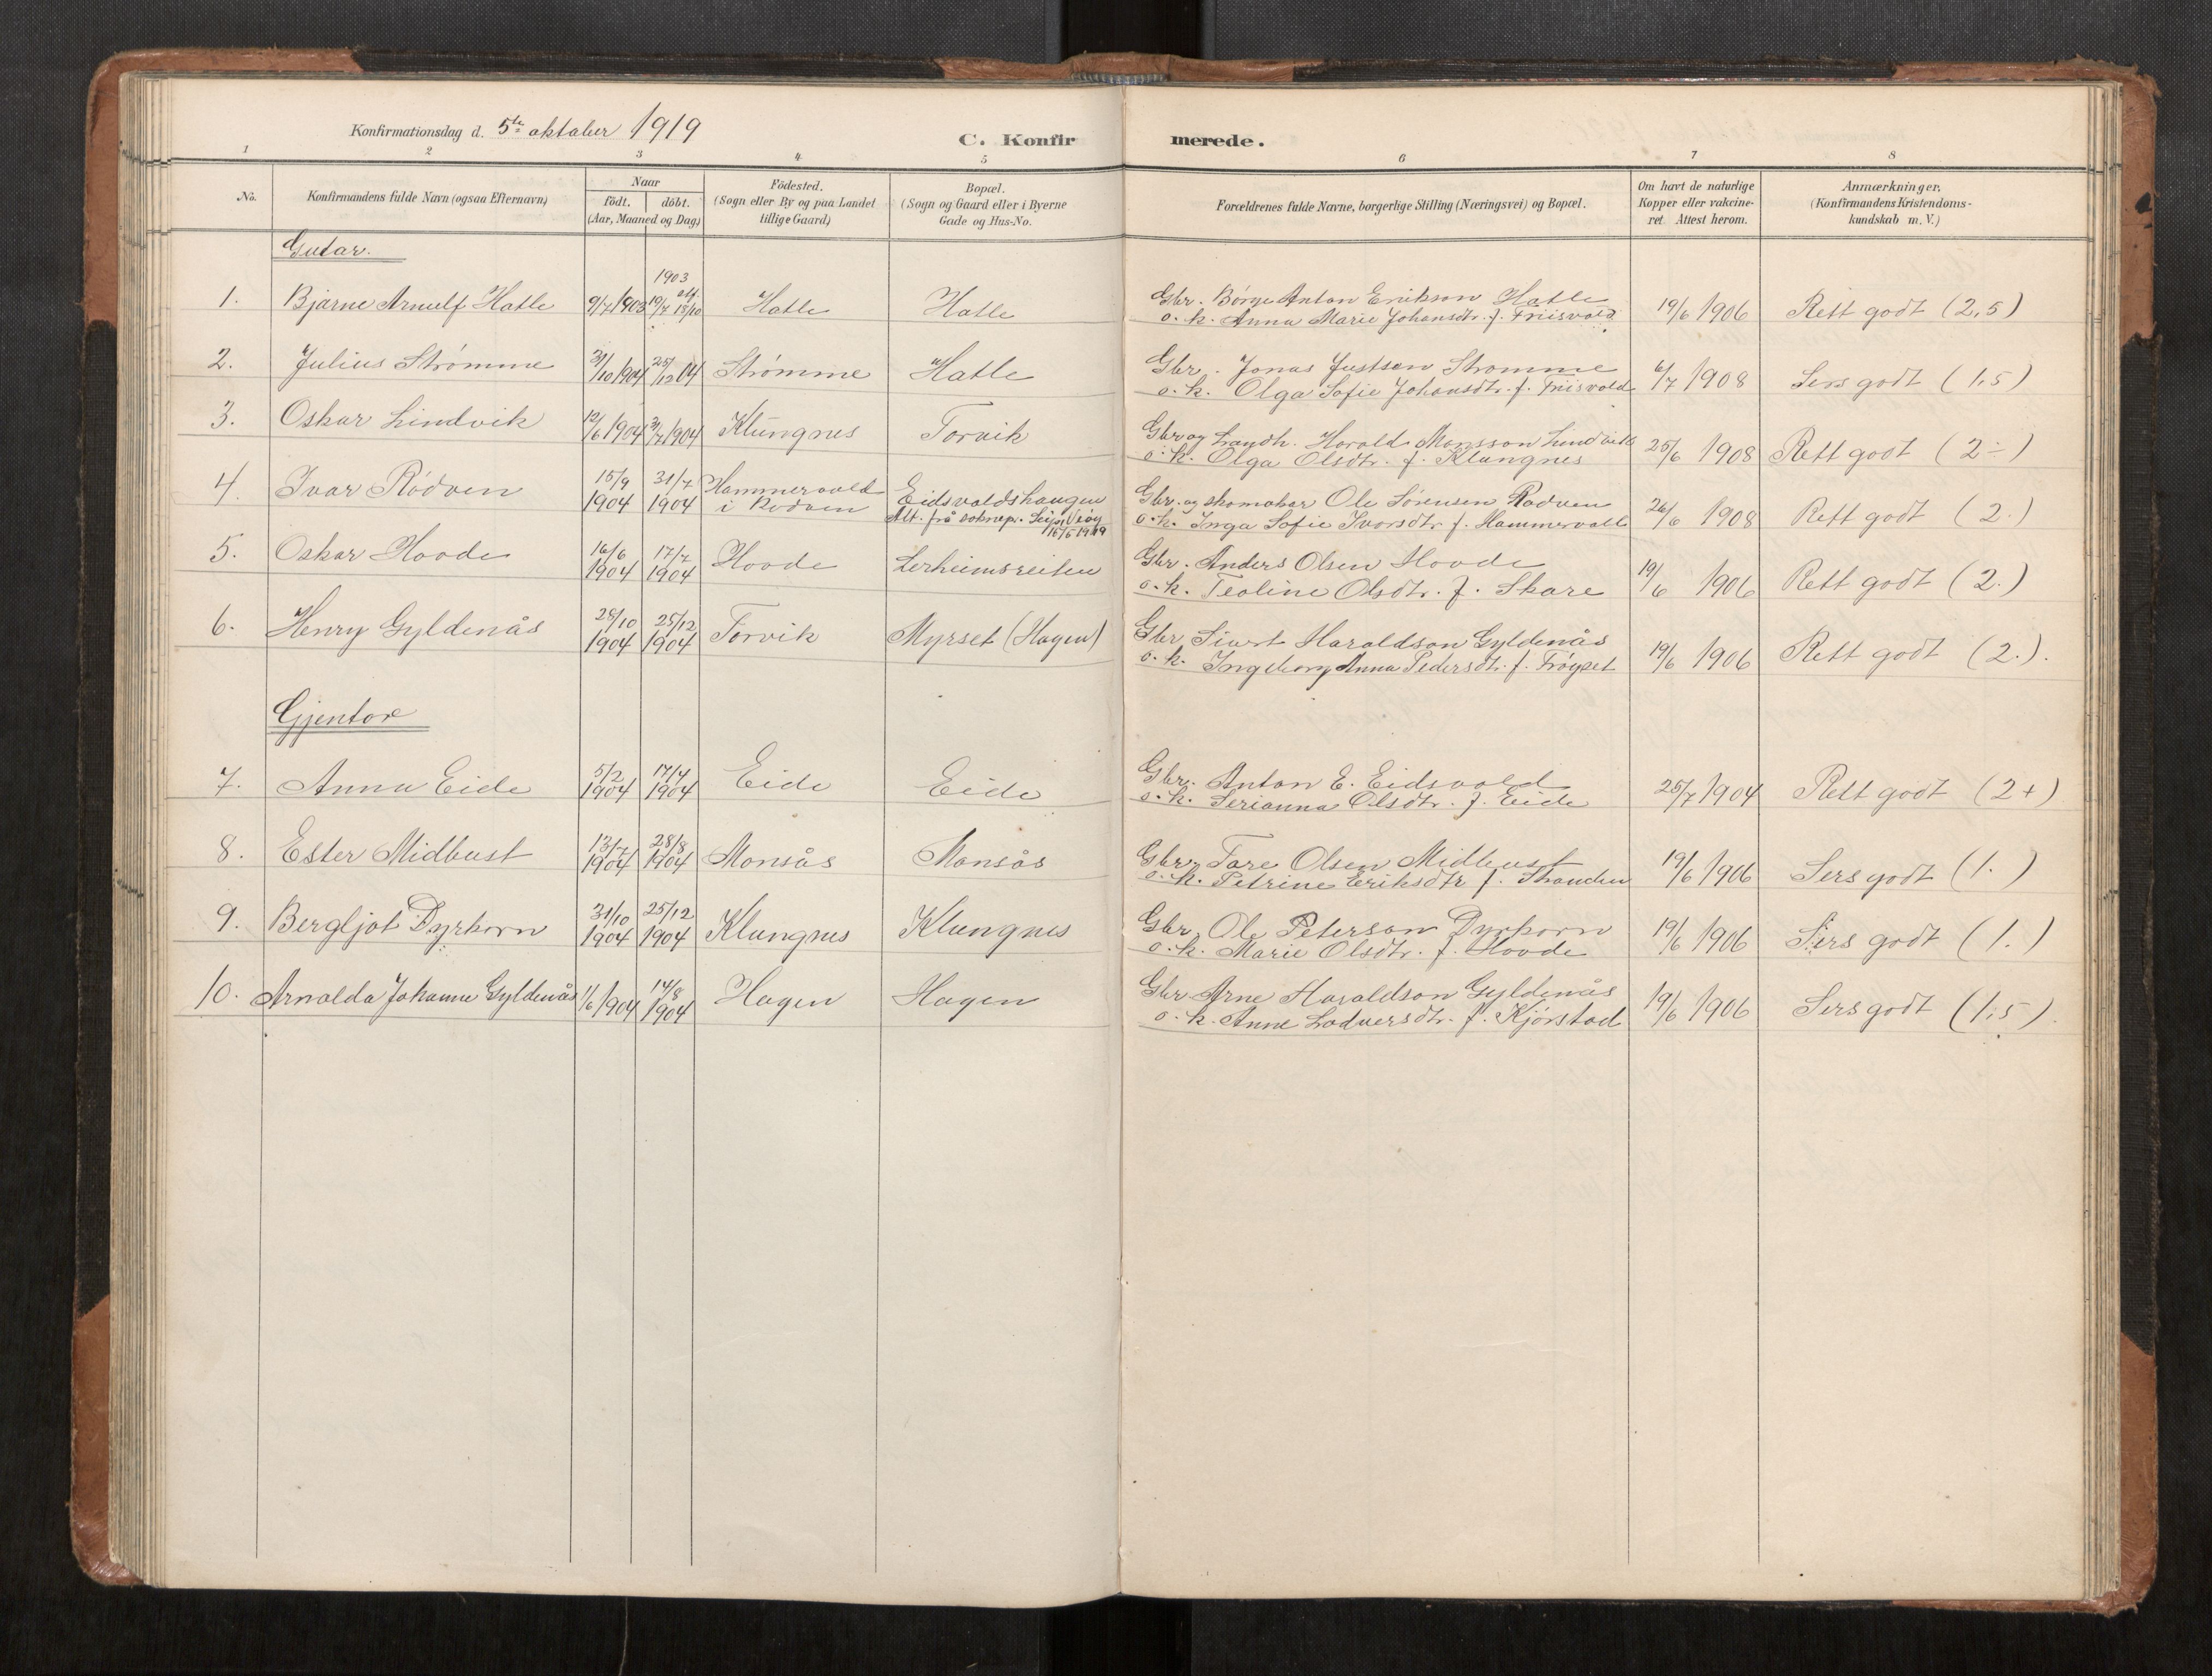 Konfirmationsdag d. 5te oktober 1919
C. Konfir merede.
1 2 3 4 5 6 7 8
No.
Konfirmandens fulde Navn (ogsaa Efternavn)
Naar
födt. döbt.
(Aar, Maaned og Dag)
Födested.
(Sogn eller By og paa Landet
tillige Gaard)
Bopæl.
(Sogn og Gaard eller i Byerne
Gade og Hus-No.
Forældrenes fulde Navne, borgerlige Stilling (Næringsvei) og Bopæl.
Om havt de naturlige
Kopper eller vakcine-
ret. Attest herom.
Anmærkninger,
(Konfirmandens Kristendoms-
kundskab m. V.)
Gutar.
1. Bjarne Arnulf Hatle 9/7 1903 1903 19/7 18/10 Hatle Hatle
Gbr. Børge Anton Erikson Hatle
o. k. Anna Marie Johansdtr. f. Friisvold
19/6 1906 Rett godt (2,5)
2. Julius Strømme 31/10 1904 25/12 04 Strømme Hatle
Gbr. Jonas Justsen Strømme
o. k. Olga Sofie Johansdtr. f. Friisvold
6/7 1908 Sers godt (1,5)
3. Oskar Lindvik 12/6 1904 31/7 1904 Klungnes Torvik
Gbr og Landh. Harald Monsson Lindvik
o. k. Olga Olsdtr. f. Klungnes
25/6 1908 Rett godt (2÷)
4. Ivar Rødven 15/9 1904 31/7 1904 Hammervold
i Rødven
Eidsvoldshaugen
Att. frå soknepr. Veøy
15/5 1919
Gbr. og skomaker Ole Sørensen Rødven
o. k. Inga Sofie Ivarsdtr. f. Hammervoll
26/6 1908 Rett godt (2.)
5. Oskar Hovde 16/6 1904 17/7 1904 Hovde Lerheimsreiten
Gbr. Anders Olsen Hovde
o. k. Teoline Olsdtr. f. Skare
19/6 1906 Rett godt (2.)
6. Henry Gyldenås 28/10 1904 25/12 1904 Torvik Myrset (Hagen)
Gbr Sivert Haraldson Gyldenås
o. k. Ingeborg Anna Pedersdtr. f. Frøyset
19/6 1906 Rett godt (2.).
Gjentor
7. Anna Eide 5/2 1904 17/4 1904 Eide Eide
Gbr. Anton E. Eidsvold
o. k. Serianna Olsdtr. f. Eide
25/7 1904 Rett godt (2+)
8. Ester Midbust 13/7 1904 28/8 1904 Monsås Monsås
Gbr. Tore Olsen Midbust
o. k. Petrine Eriksdtr f. Stranden
19/6 1906 Sers godt (1.)
9. Bergljot Dyrkorn 31/10 1904 25/12 1904 Klungnes Klungnes
Gbr. Ole Peterson Dyrkorn
o. k. Marie Olsdtr. f. Hovde
19/6 1906 Sers godt (1.)
10. Arnolda Johanne Gyldenås 1/6 1904 14/8 1904 Hagen Hagen
Gbr Arne Haraldson Gyldenås
o. k. Anne Ladversdtr. f. Kjørstad
19/6 1906 Sers godt (1,5).